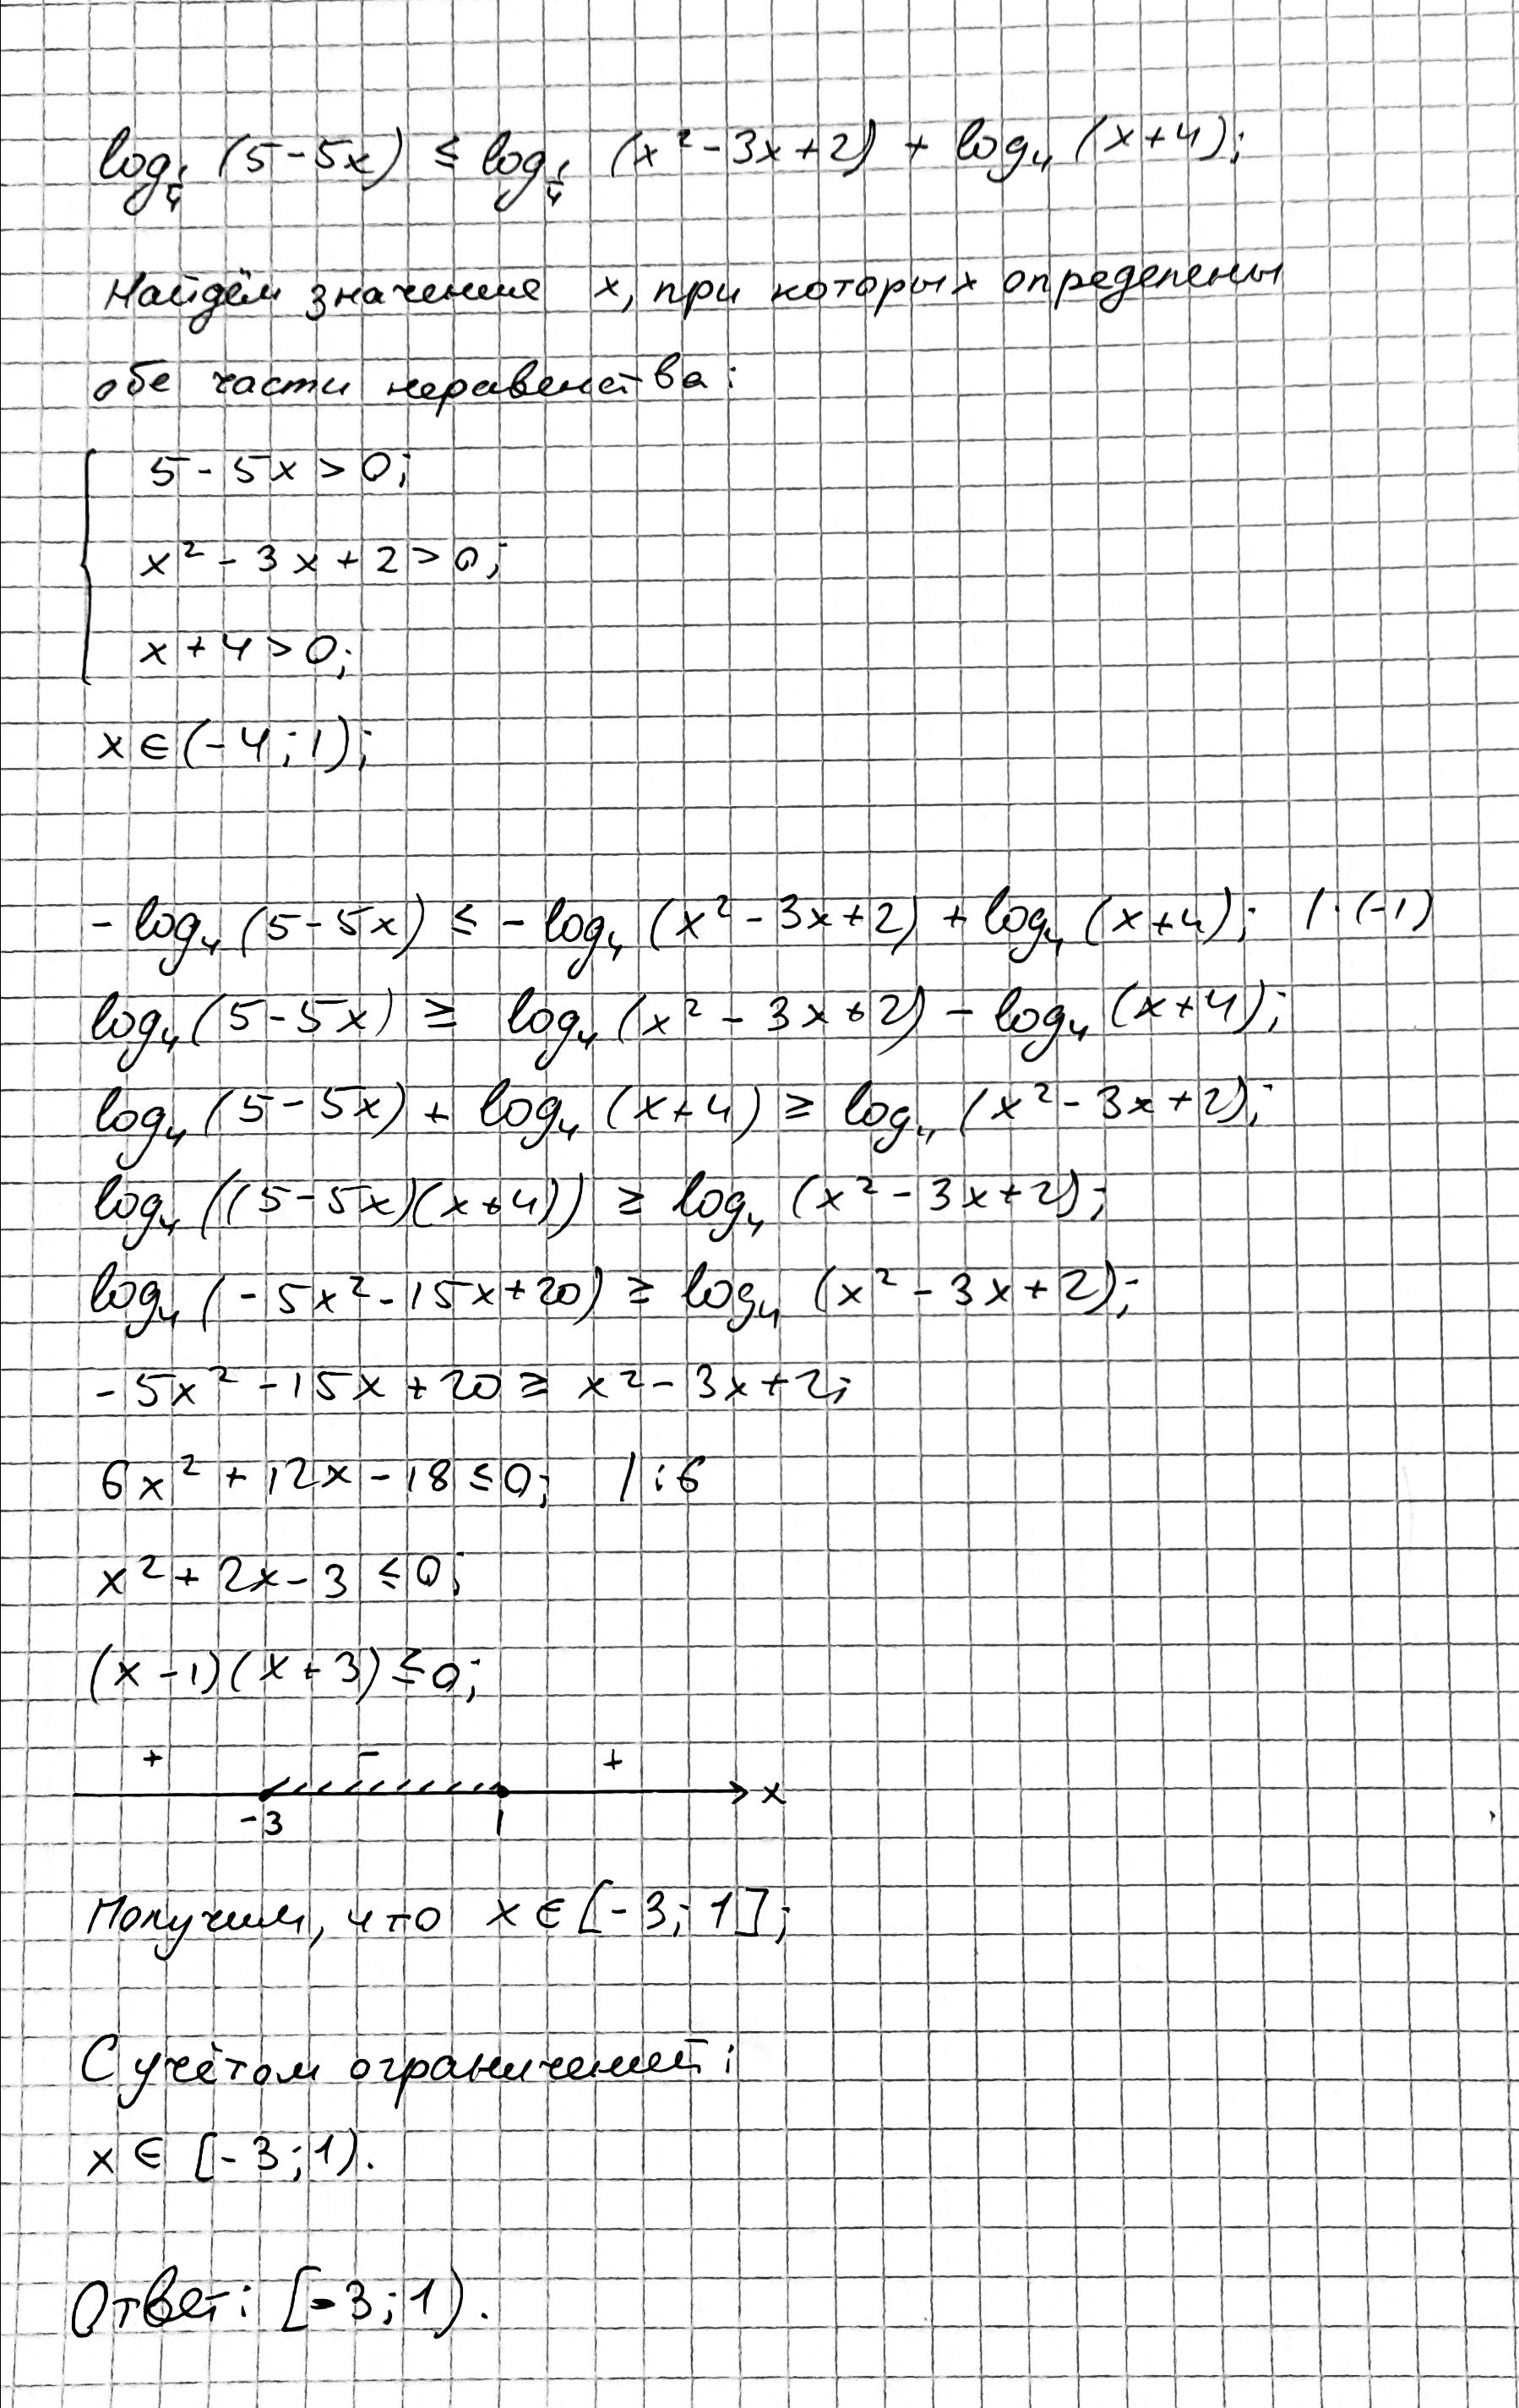 log_{1/4} (5-5x) ≤ log_{1/4} (x²-3x+2) + log₄ (x+4);
Найдём значение x, при которых определены
обе части неравенства:
5-5x>0;
x²-3x+2>0;
x+4>0;
x∈(-4;1);
-log₄(5-5x) ≤ -log₄(x²-3x+2)+log₄(x+4); |·(-1)
log₄(5-5x) ≥ log₄(x²-3x+2)-log₄(x+4);
log₄(5-5x)+log₄(x+4) ≥ log₄(x²-3x+2);
log₄((5-5x)(x+4)) ≥ log₄(x²-3x+2);
log₄(-5x²-15x+20) ≥ log₄(x²-3x+2);
-5x²-15x+20 ≥ x²-3x+2;
6x²+12x-18≤0; |:6
x²+2x-3≤0;
(x-1)(x+3)≤0;
+ - +
-3 1 x
Получим, что x∈[-3;1];
С учётом ограничений:
x∈[-3;1).
Ответ: [-3;1).